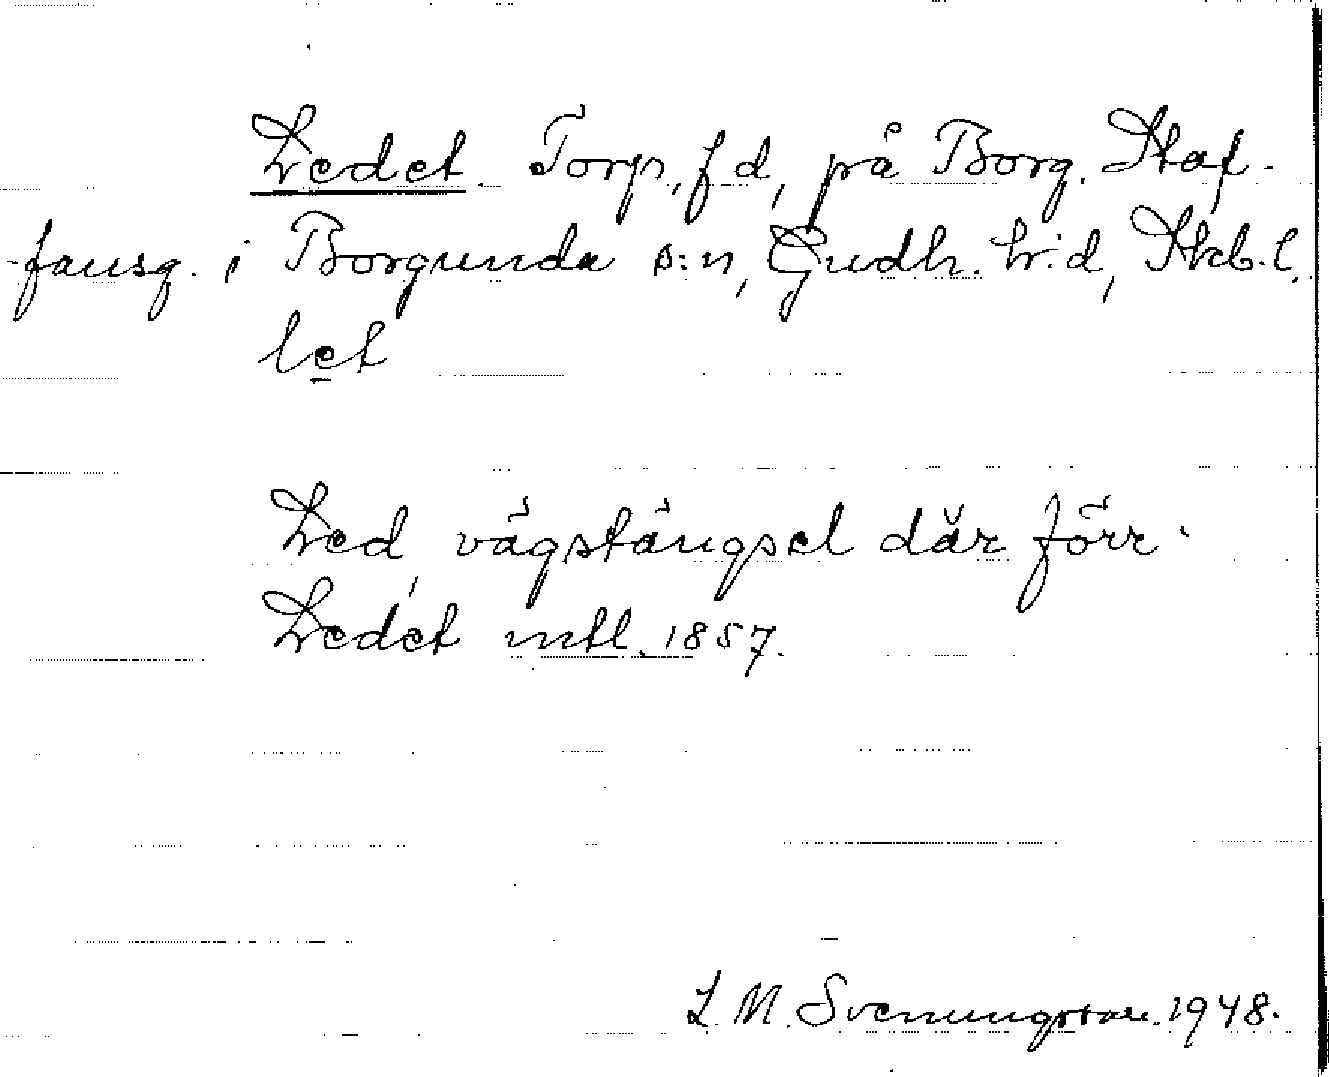 Ledet. Torp, f d, på Borg. Staf-
fansg. i Borgunda s:n, Gudh. h:d, Skb. l.
let
Led, vägstängsel där förr.
Ledet mtl. 1857.
L. M. Svenungsson. 1948.